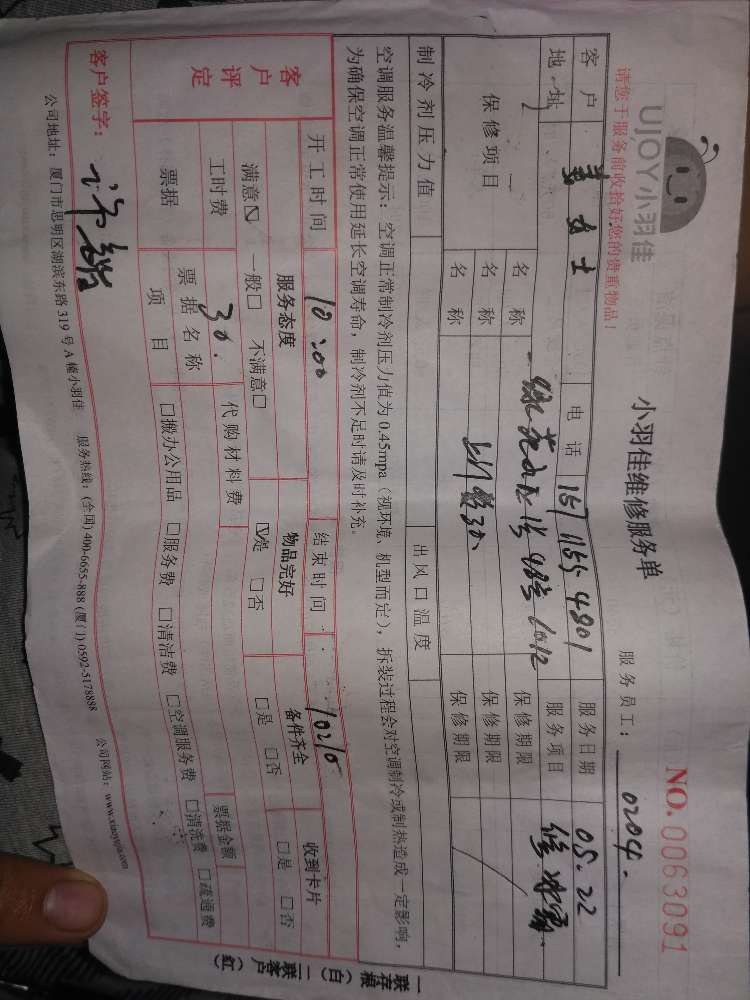 UJOY小羽佳
小羽佳维修服务单
NO.0063091
请您于服务前收拾好您的贵重物品！
服务员工： 0204.
客户 女士 电话 157 1155-4801 服务日期 05.22
地址 服务项目 修
保修项目 名称 保修期限
名称 保修期限
名称 保修期限
制冷剂压力值 出风口温度
空调服务温馨提示：空调正常制冷剂压力值为 0.45mpa（视环境、机型而定），拆装过程会对空调制冷或制热造成一定影响，
为确保空调正常使用延长空调寿命，制冷剂不足时请及时补充。
客户评定
开工时间 10:00 结束时间 10:10
服务态度 物品完好 备件齐全 收到卡片
满意☑ 一般□ 不满意□ ☑是 □否 □是 □否 □是 □否
工时费 30. 代购材料费 票据金额
票据 票据名称
项目 □搬办公用品 □服务费 □清洁费 □空调服务费 □清洗费 □疏通费
客户签字：
公司地址：厦门市思明区湖滨东路 319 号 A 幢小羽佳 服务热线：(全国) 400-6655-888 (厦门) 0592-5178888 公司网站：www.xiaoyujia.com
一联存根（白） 二联客户（红）